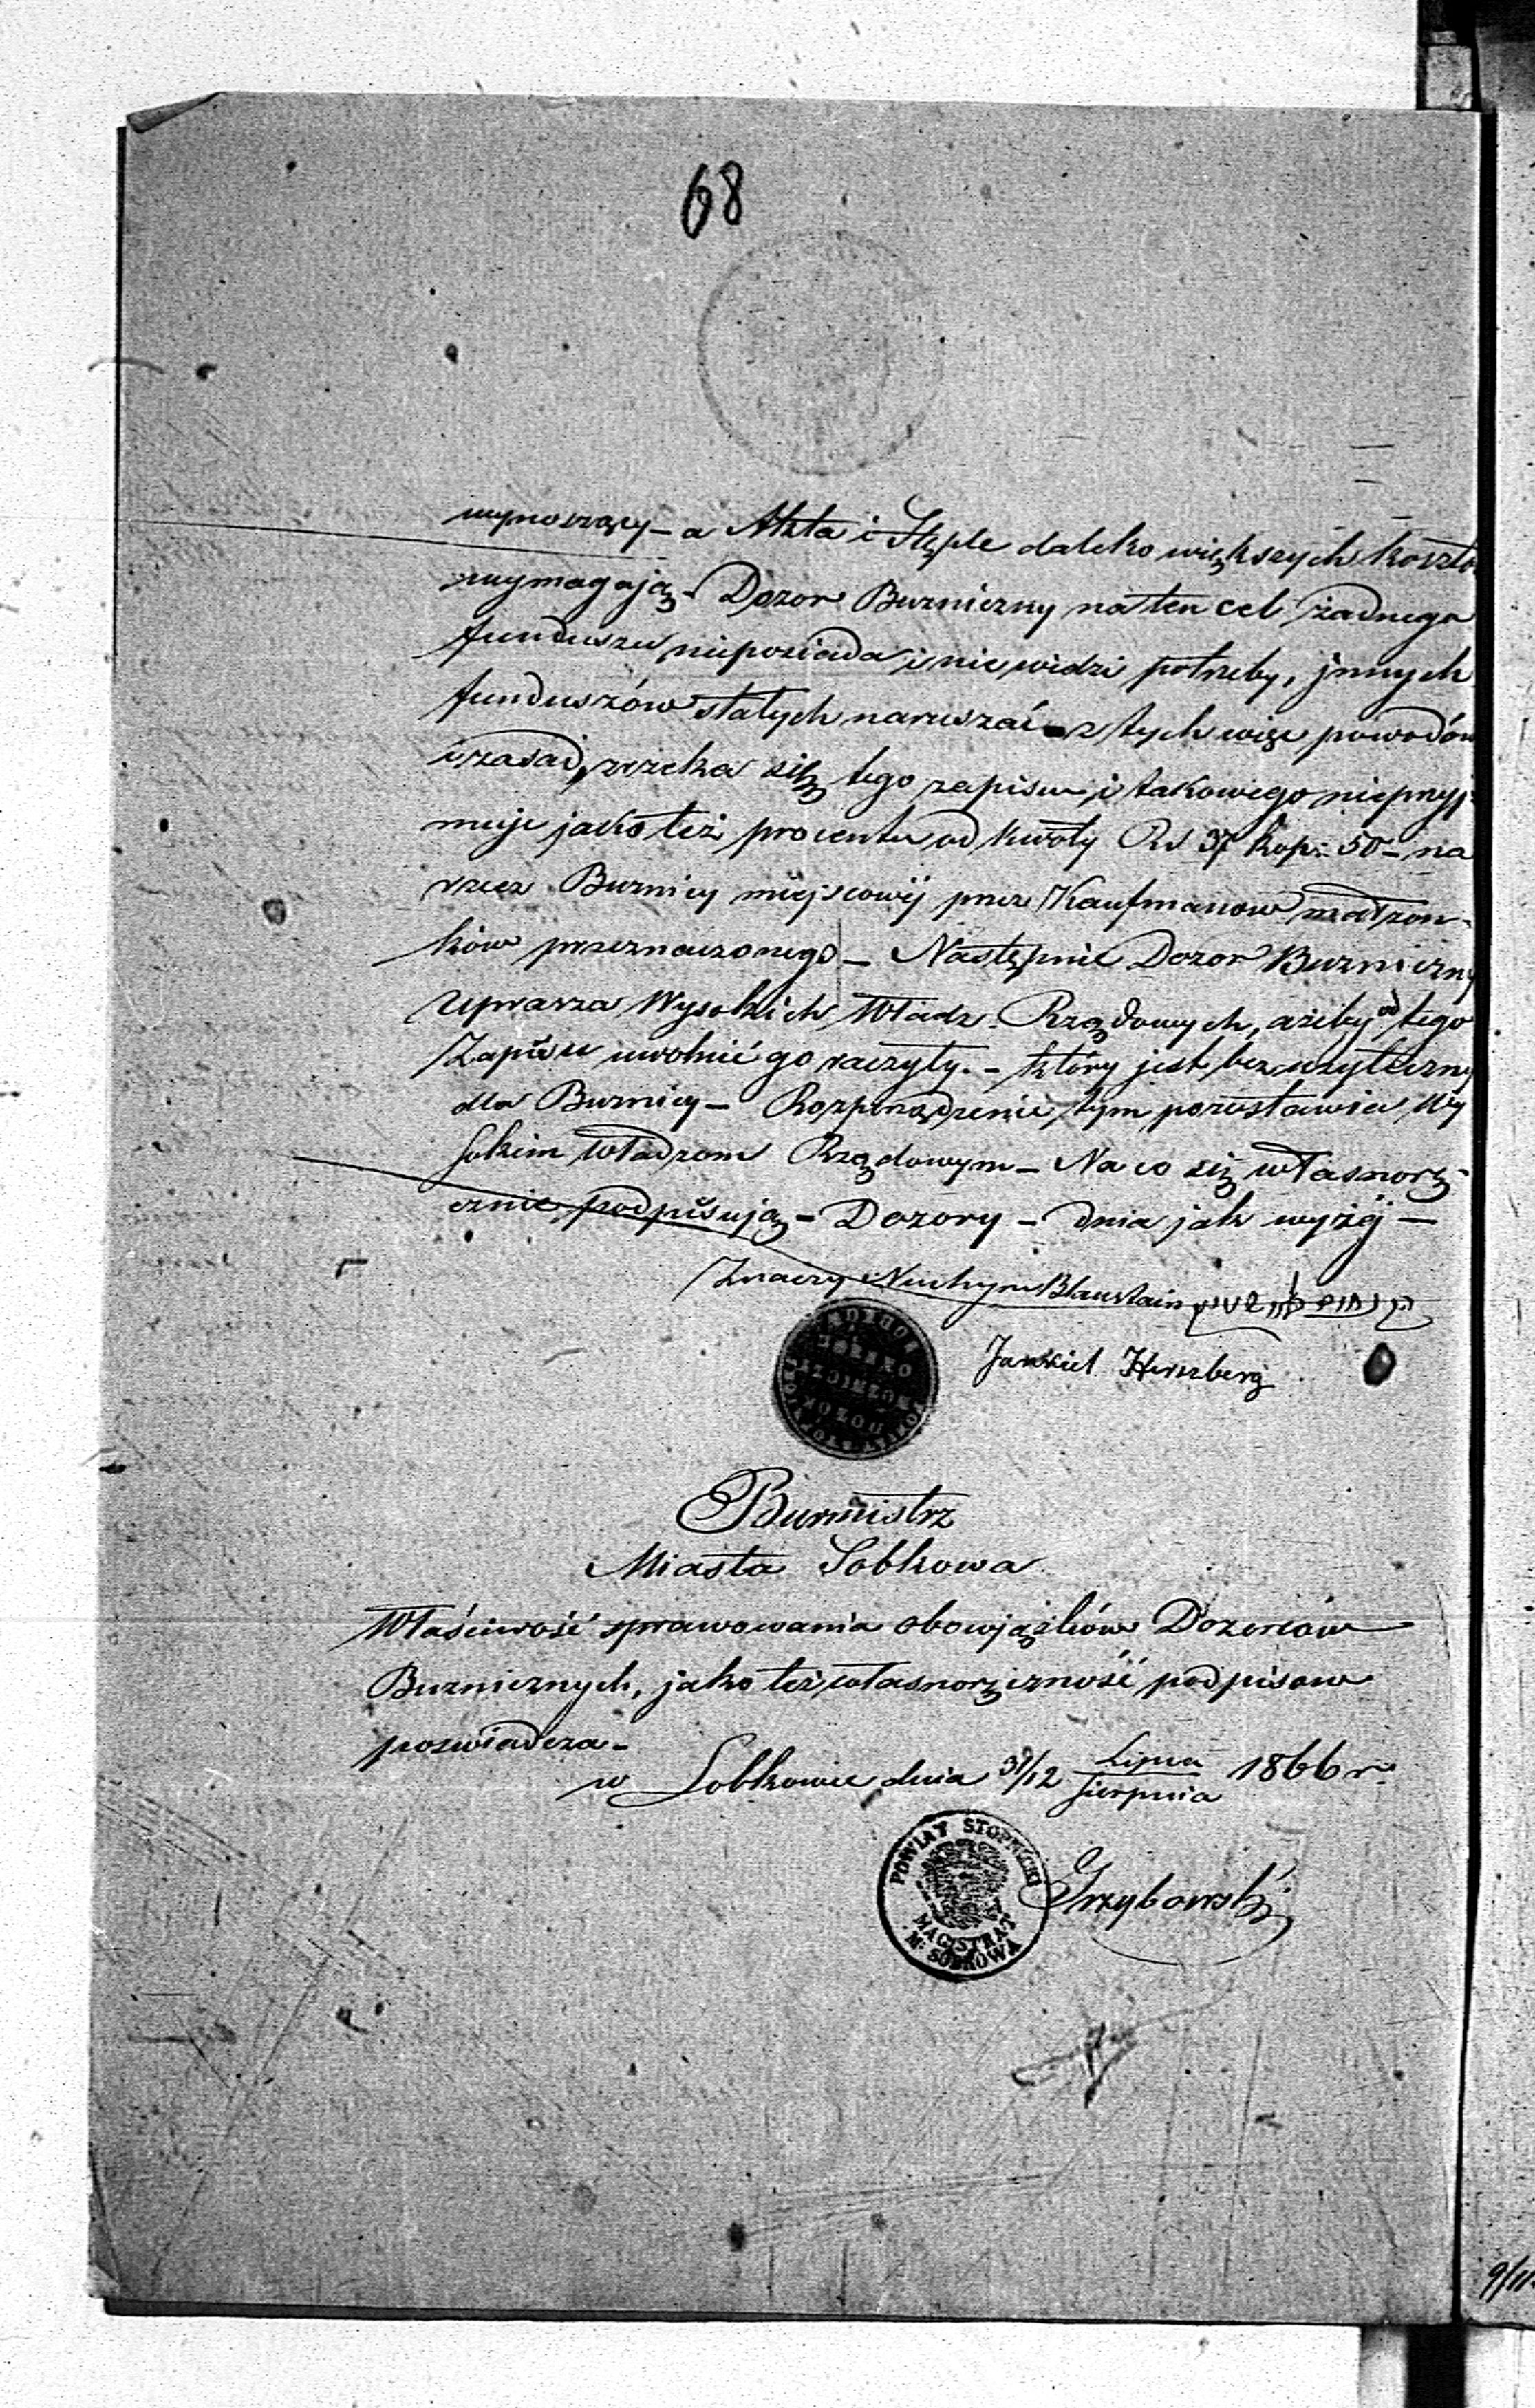 68
wynoszący – a Akta i Stęple daleko większych koszto
wymagają – Dozor Buzniczny na ten cel żadnego
funduszu nieposiada i nie widzi potrzeby, jnnych
funduszów stałych naruszać – z tych więc powodów
i zasad, zrzeka się tego zapisu i takowego nieprzyj:
muje jako też procentu od kwoty Rs 37 kop: 50 – na
rzecz Buznicy miejscowéj przez Kaufmanow małżon-
ków przeznaczonego – Następnie Dozor Buzniczny
Uprasza Wysokich Władz Rządowych, ażeby od tego
Zapisu uwolnić go raczyły. – który jest bezużyteczny
dla Buznicy – Rozporządzenie tym pozostawia Wy
sokim Władzom Rządowym – Na co się własnorę-
cznie podpisują – Dozory – dnia jak wyżéj –
Znaczy Nuchym Blaustain
Jankiel Herszberg
Burmistrz
Miasta Sobkowa
Właściwość sprawowania obowjązków Dozorców
Buznicznych, jako też własnoręczność podpisow
poswiadcza –
w Sobkowie dnia 31/12 Lipca/Sierpnia 1866 r.
POWIAT STOPNICKI
MAGISTRAT
M. SOBKOWA
Grzybowski